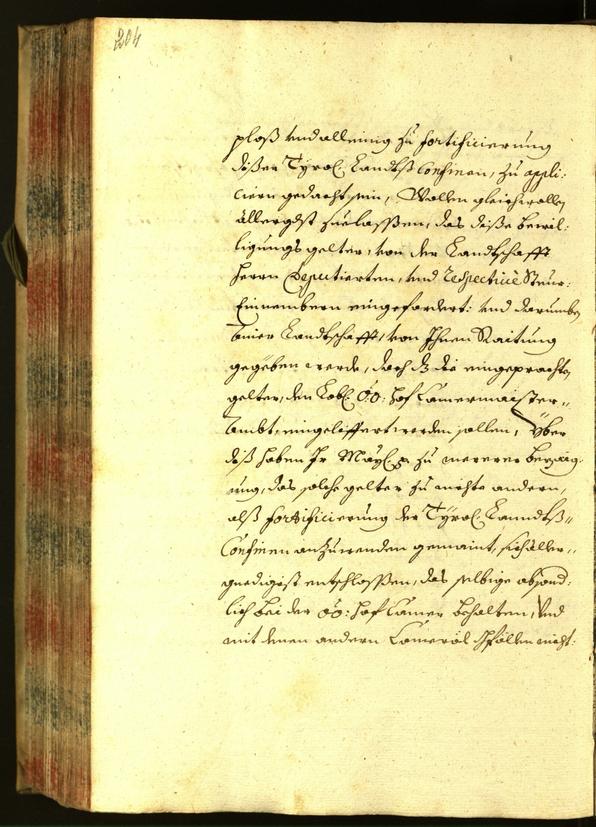 204
ploß vnd allainig zu fortificierung
diser Tyrol. Landtß Confinen, zu appli:
ciern gedacht sein, Wollen gleichwollen
allergdst zuelassen, das dise bewil:
ligungs gelter, von der Landtschafft
herrn Deputierten, vnd respectiuè Steur:
Einnembern eingefordert: vnd darumben
ainer Landtschafft, von Ihnen Raitung
gegeben werde, doch dz die eingeprachte
gelter, den Lobl. OÖ: Hof Camermaister„
Ambt, eingeliffert werden sollen, Yber
diß haben Ir May. zu mererer bezaig:
ung, das solche gelter zu nichte andern,
alß fortificierung der Tyrol. Lanndtß„
Confinen anzuwenden gemaint, sich aller„
gnedigist entschlossen, das selbige absond:
lich bei der OÖ: Hof Camer behalten, vnd
mit denen andern Cameral gföllen nicht: